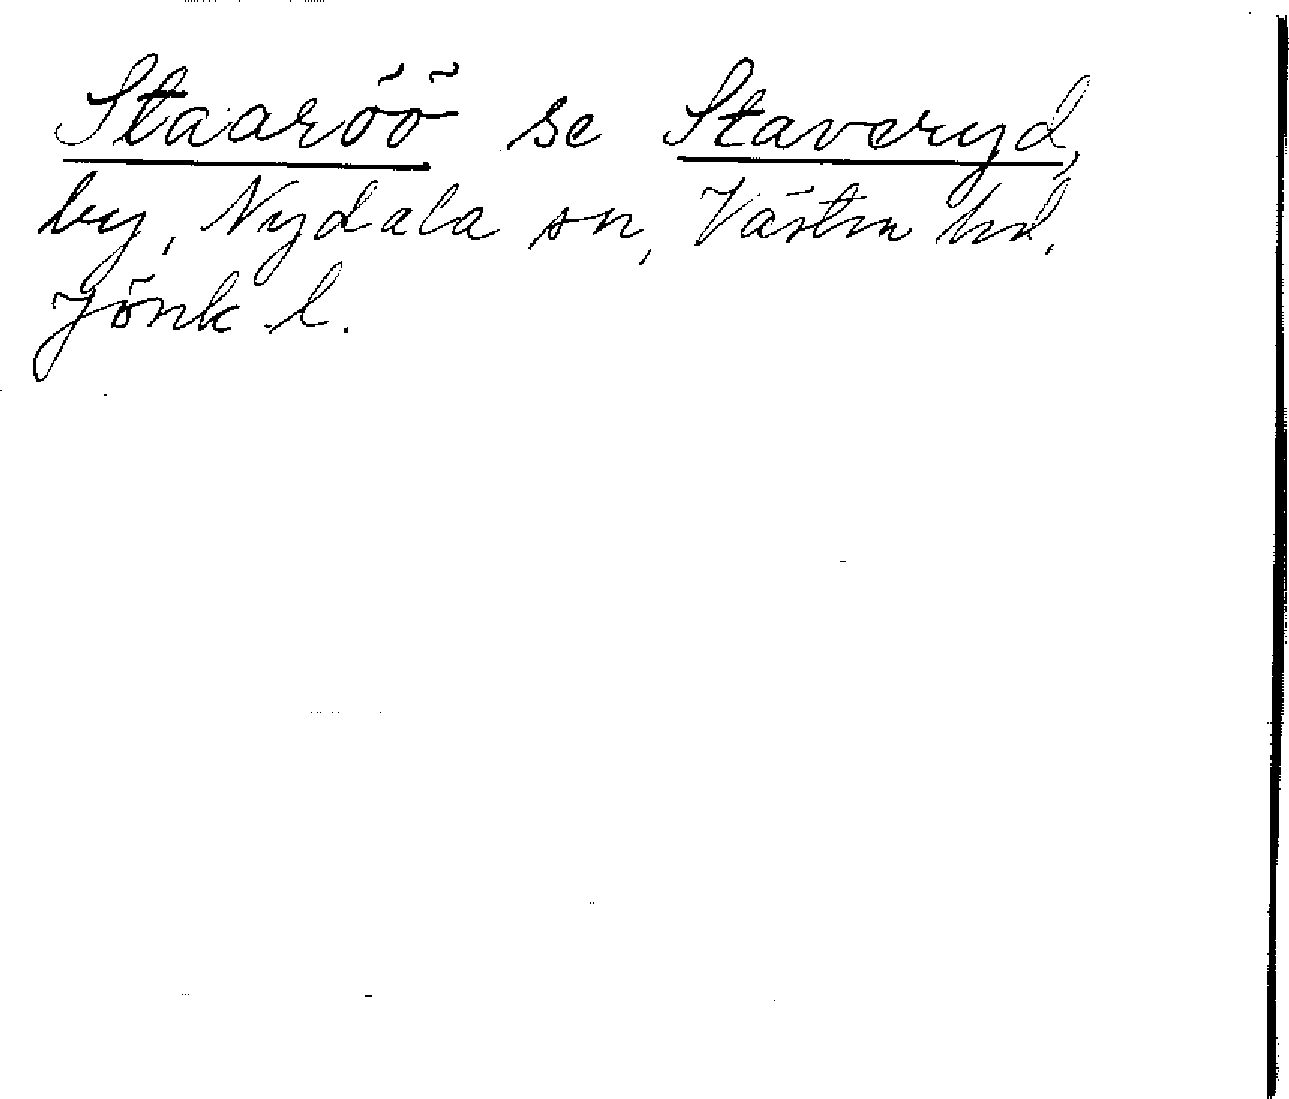 Staaröö se Staveryd,
by, Nydala sn, Västra hd,
Jönk l.